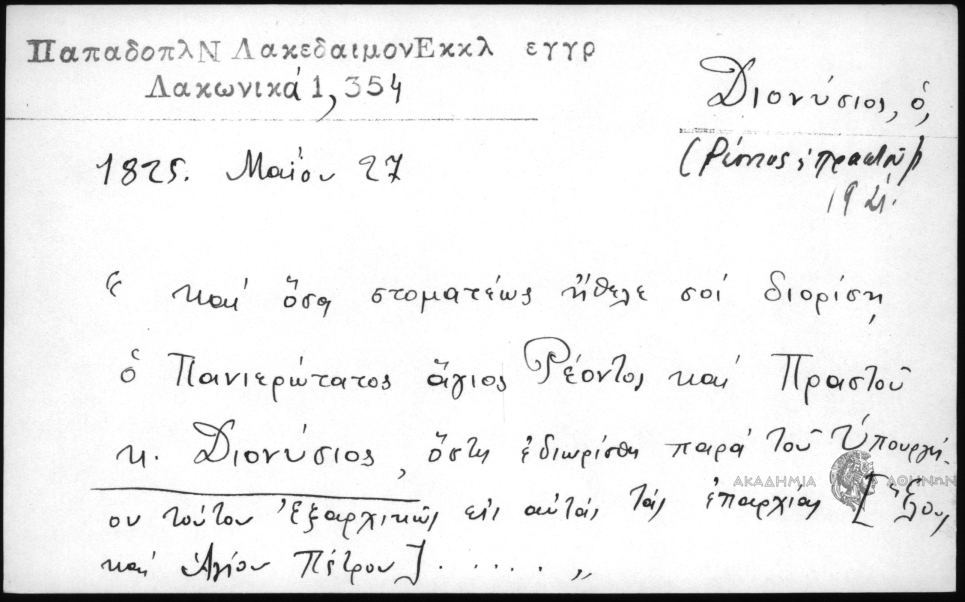 ΠαπαδοπλΝ ΛακεδαιμονΕκκλ εγγρ
Λακωνικά 1, 354
Διονύσιος, ὁ,
(Ρέοντος & Πραστοῦ)
1825. Μαΐου 27
“ καί ὅσα στοματέως ἤθελε σοί διορίσῃ
ὁ Πανιερώτατος ἅγιος Ρέοντος καί Πραστοῦ
κ. Διονύσιος, ὅστις ἐδιωρίσθη παρά τοῦ Ὑπουργεί-
ου τούτου Ἐξαρχικῶς εἰς αὐτάς τάς ἐπαρχίας [Ἕλους
καί Ἁγίου Πέτρου] . . . . . „
ΑΚΑΔΗΜΙΑ ΑΘΗΝΩΝ